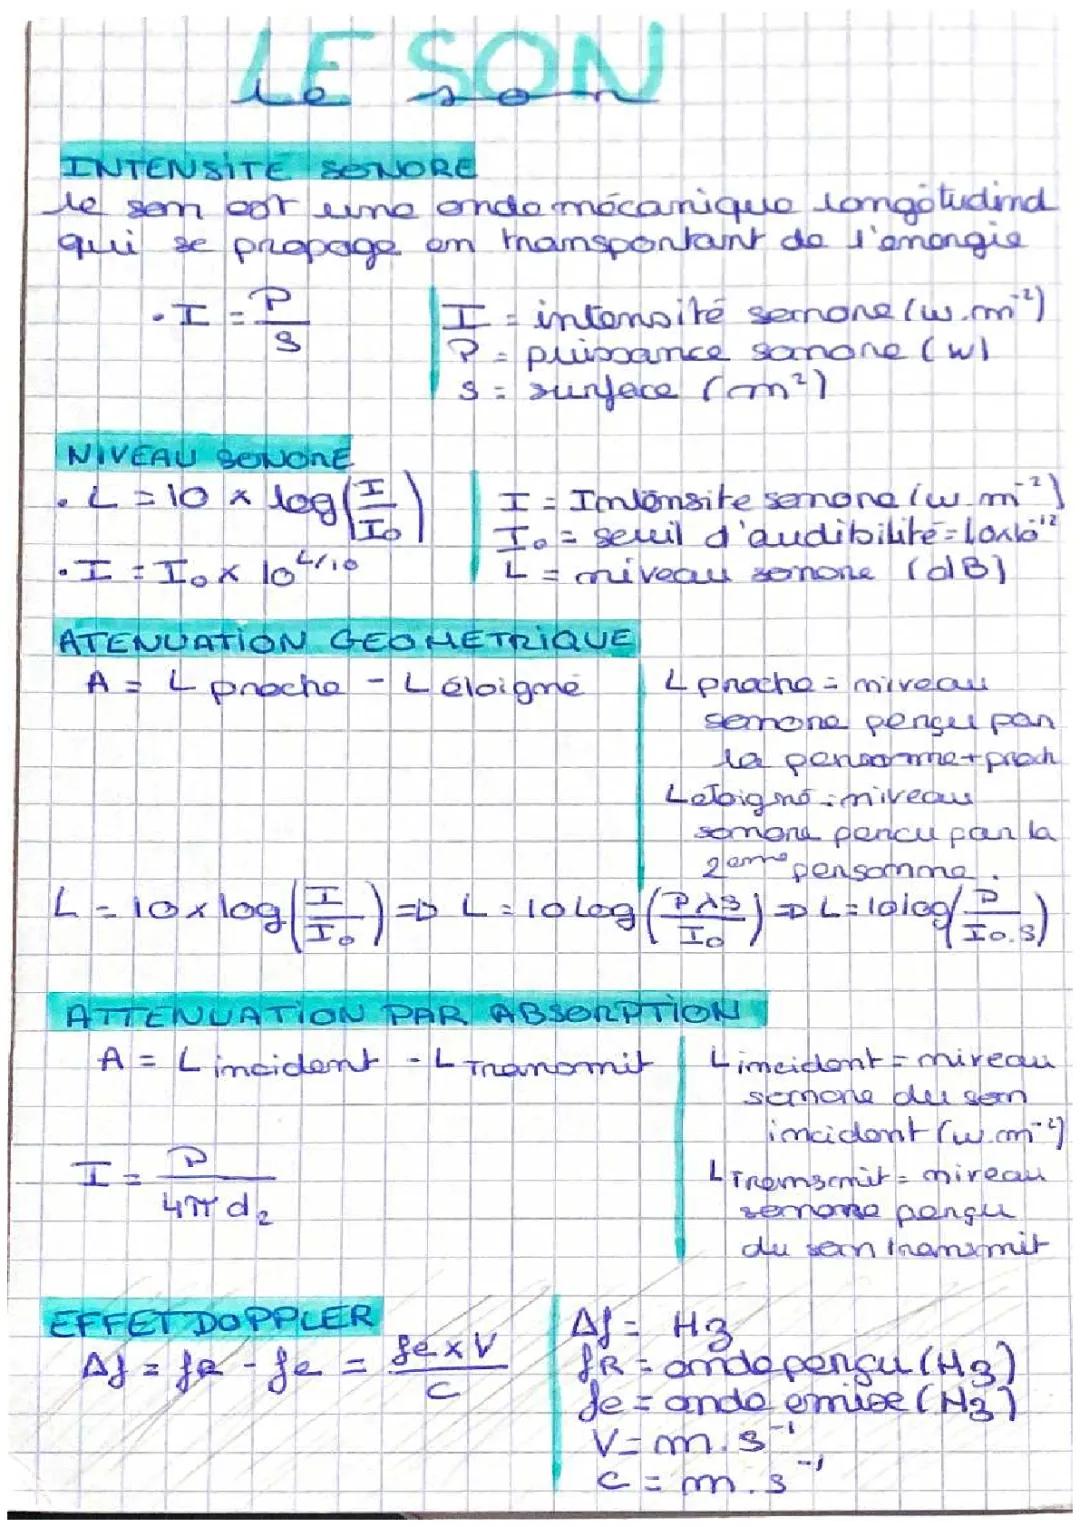 LE SON
Le son
INTENSITÉ SONORE
le son est une onde mécanique longitudinal
qui se propage en transportant de l'énergie
• I = P/S
I = intensité sonore (w.m⁻²)
P = puissance sonore (w)
S = surface (m²)
NIVEAU SONORE
• L = 10 × log(I/I₀)
• I = I₀ × 10^L/10
I = Intensite sonore (w.m⁻²)
I₀ = seuil d'audibilité = 1,0×10⁻¹²
L = niveau sonore (dB)
ATENUATION GEOMETRIQUE
A = L proche - L éloigné
L proche = niveau
sonore perçu par
la personne + proch
L eloigné = niveau
sonore percu par la
2eme personne.
L = 10 × log(I/I₀) => L = 10 log(P/S/I₀) => L = 10 log(P/I₀.S)
ATTENUATION PAR ABSORPTION
A = L incident - L Transmit
I = P/4π d₂
L incident = niveau
sonore du son
incident (w.m⁻²)
L Transmit = niveau
sonore perçu
du son transmit
EFFET DOPPLER
Δf = fR - fe = fe × V/C
Δf = Hz
fR = onde perçu (Hz)
fe = onde emise (Hz)
V = m.s⁻¹
c = m.s⁻¹